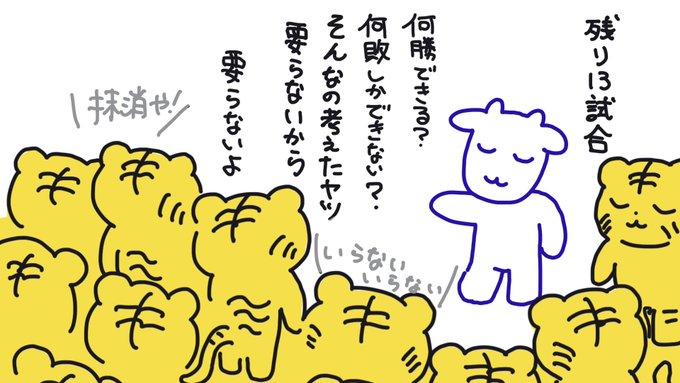 残り13試合
何勝できる?
何敗しかできない?
そんなの考えたヤツ
要らないから
要らないよ
抹消や!
いらない
いらない